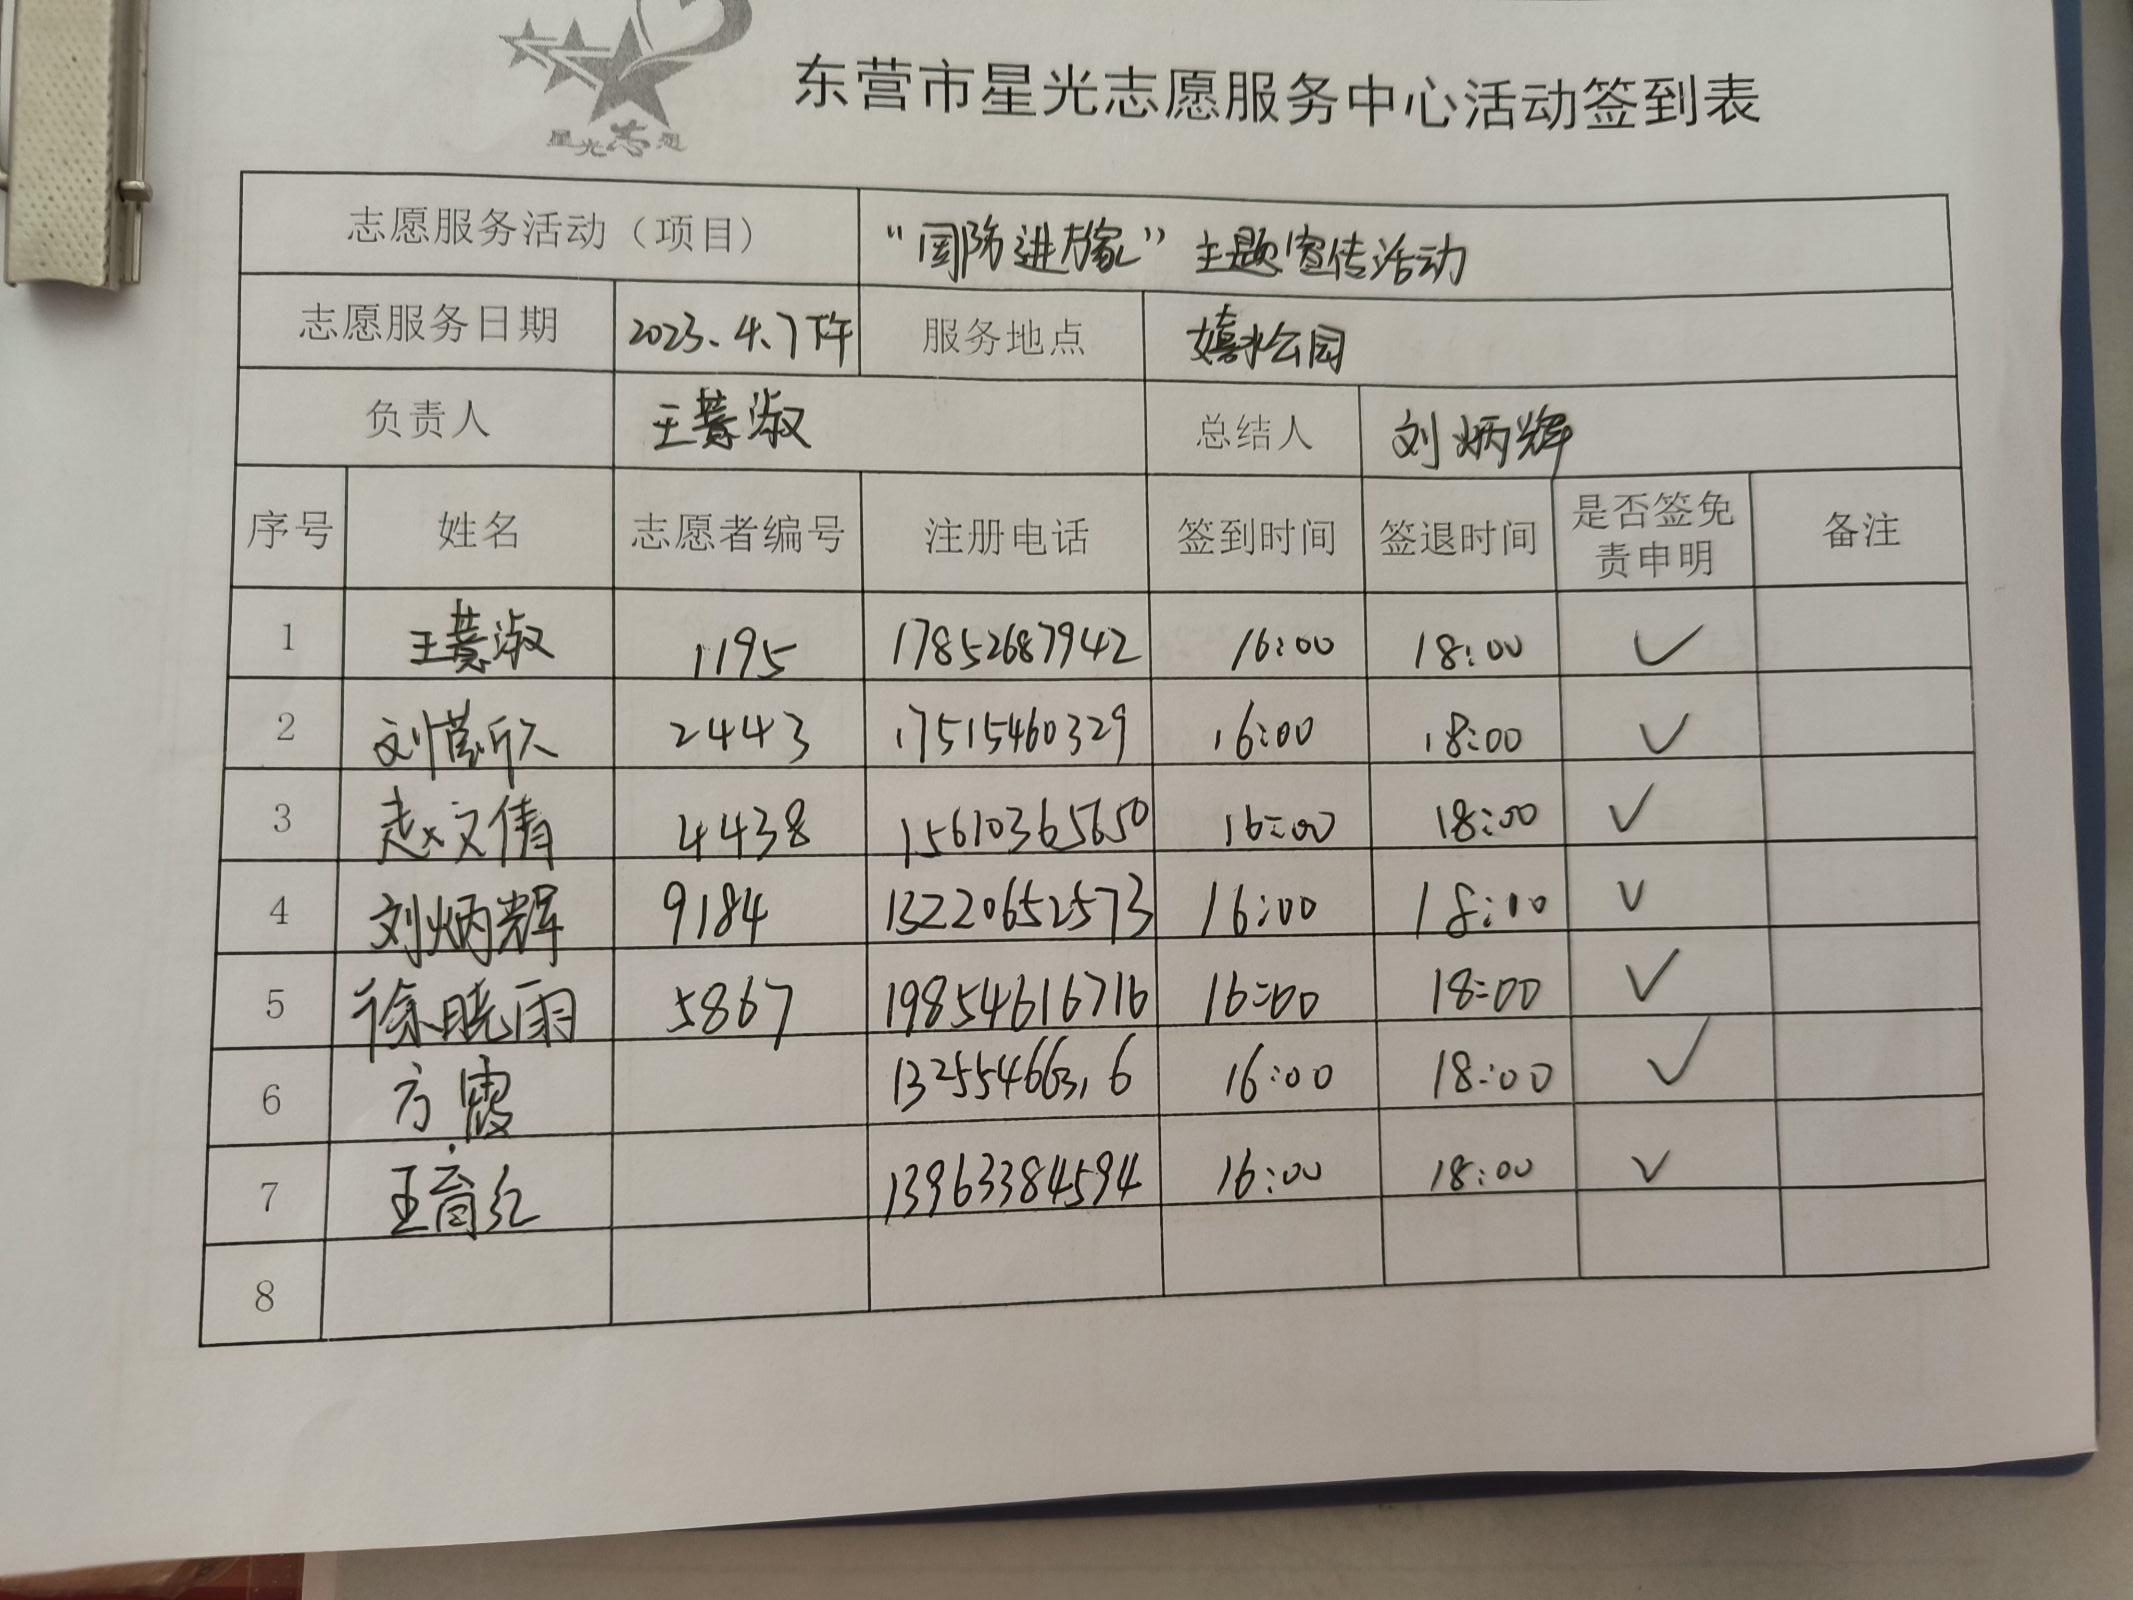 星光志愿
东营市星光志愿服务中心活动签到表
志愿服务活动（项目） “国防进万家”主题宣传活动
志愿服务日期 2023.4.7下午 服务地点 嬉水公园
负责人 王慧淑 总结人 刘炳辉
序号 姓名 志愿者编号 注册电话 签到时间 签退时间 是否签免责申明 备注
1 王慧淑 1195 17852687942 16:00 18:00 ✓
2 刘 欣 2443 17515460329 16:00 18:00 ✓
3 赵文倩 4438 15610365650 16:00 18:00 ✓
4 刘炳辉 9184 13220652573 16:00 18:00 ✓
5 徐晓雨 5867 19854616716 16:00 18:00 ✓
6 方霞 13255466316 16:00 18:00 ✓
7 王育红 13963384594 16:00 18:00 ✓
8